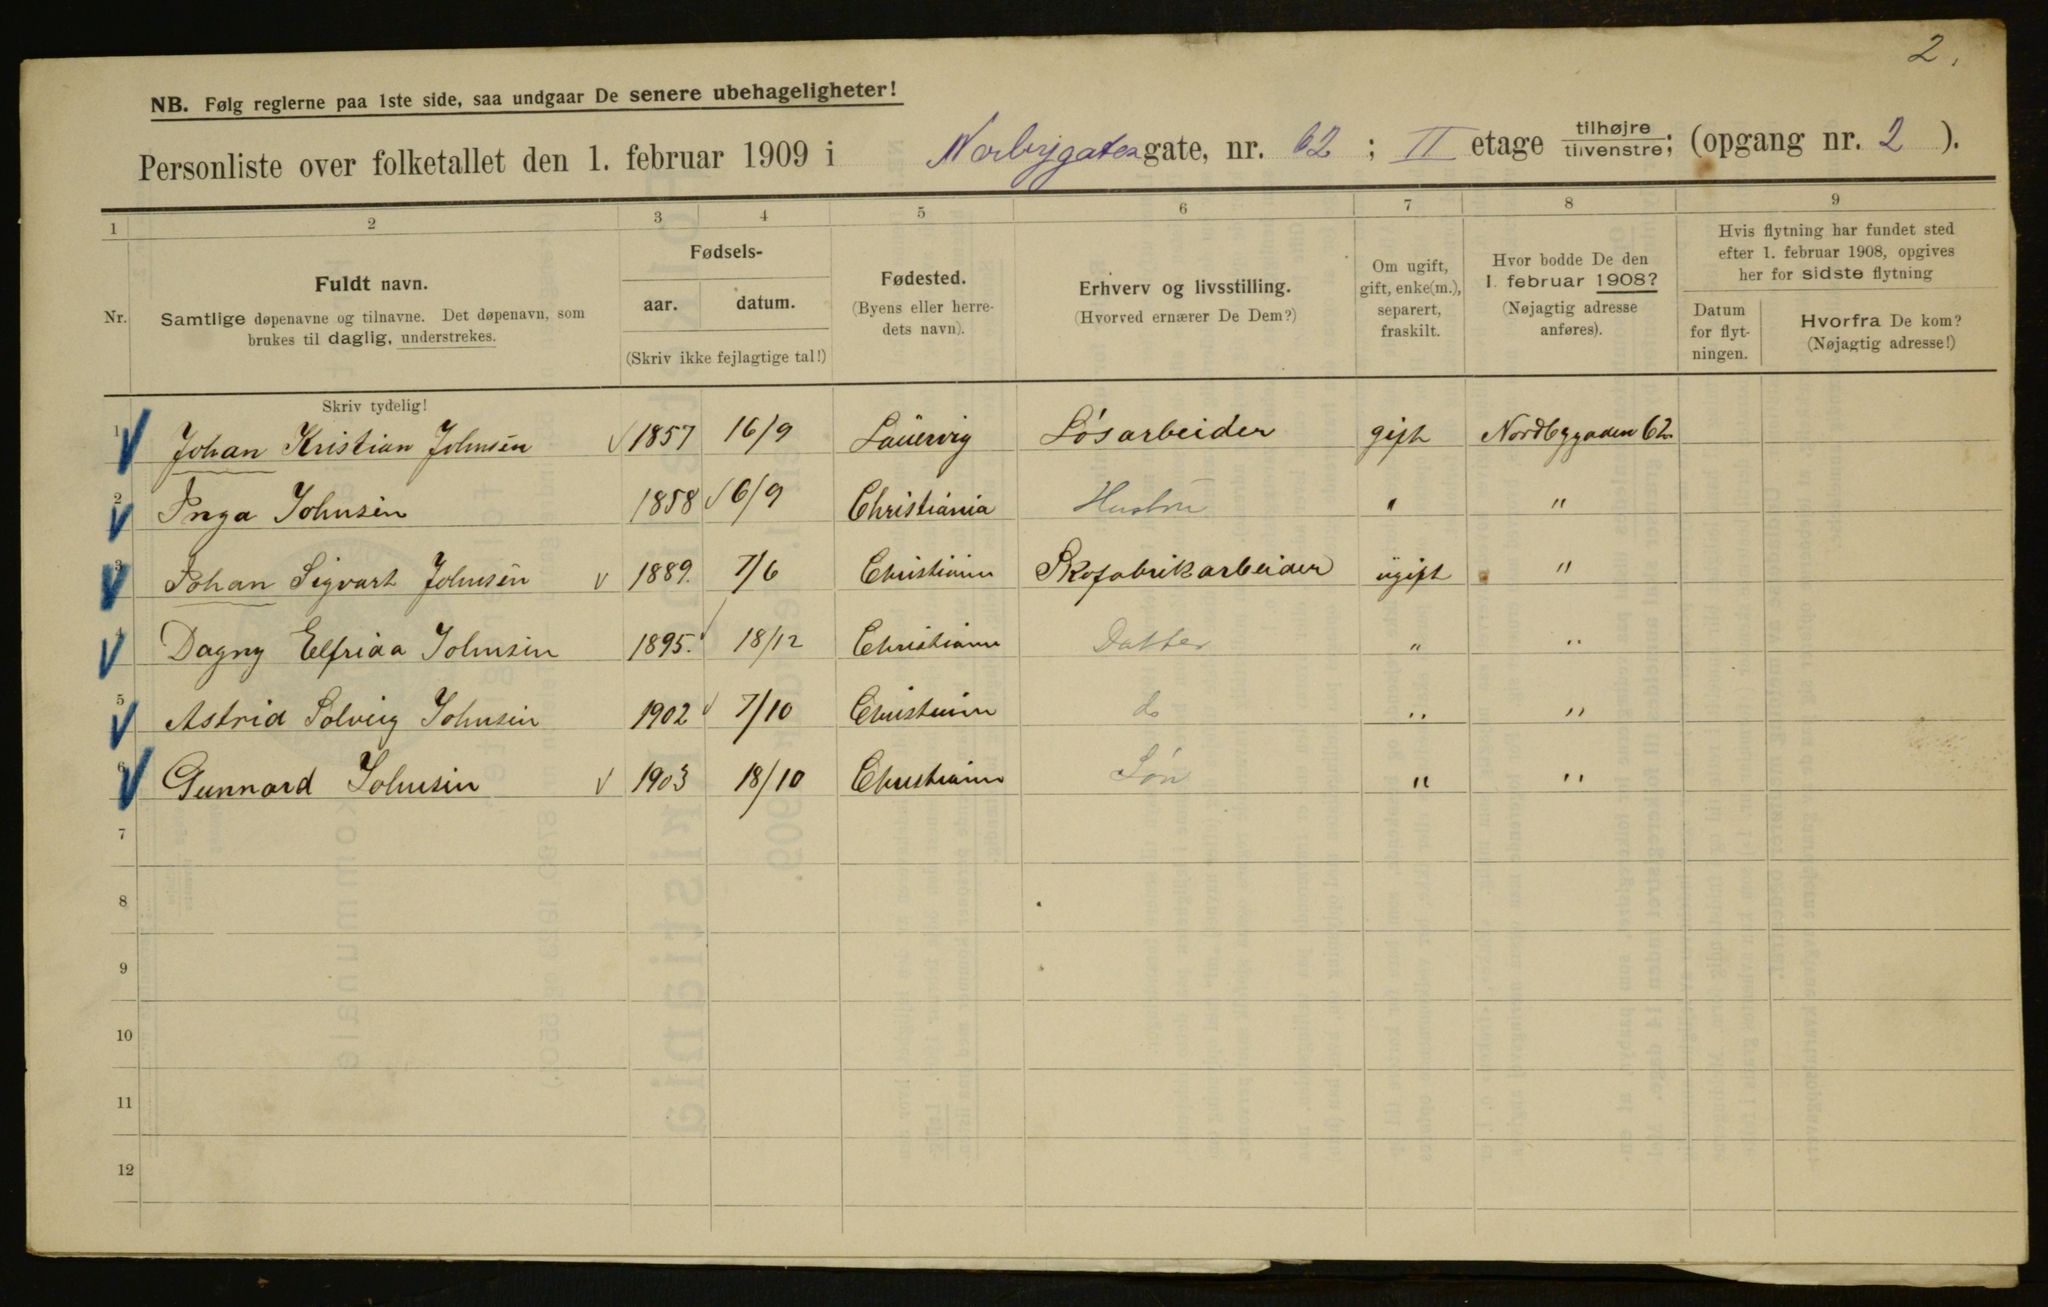 2.
NB. Følg reglerne paa 1ste side, saa undgaar De senere ubehageligheter!
Personliste over folketallet den 1. februar 1909 i Norbygaten gate, nr. 62 ; II etage tilhøjre / tilvenstre; (opgang nr. 2 ).
1 2 3 4 5 6 7 8 9
Nr.
Fuldt navn.
Samtlige døpenavne og tilnavne. Det døpenavn, som
brukes til daglig, understrekes.
Fødsels-
aar. datum.
(Skriv ikke fejlagtige tal!)
Fødested.
(Byens eller herre-
dets navn).
Erhverv og livsstilling.
(Hvorved ernærer De Dem?)
Om ugift,
gift, enke(m.),
separert,
fraskilt.
Hvor bodde De den
1. februar 1908?
(Nøjagtig adresse
anføres).
Hvis flytning har fundet sted
efter 1. februar 1908, opgives
her for sidste flytning
Datum
for flyt-
ningen.
Hvorfra De kom?
(Nøjagtig adresse!)
Skriv tydelig!
1 Johan Kristian Johnsen 1857 16/9 Laurvig Løsarbeider gift Nordbygaden 62
2 Inga Johnsen 1858 6/9 Christiania Hustru " "
3 Johan Sigvart Johnsen 1889. 7/6 Christiania Skofabrikarbeider ugift "
4 Dagny Elfrida Johnsen 1895. 18/12 Christiania Datter " "
5 Astrid Solveig Johnsen 1902 7/10 Christiania do " "
6 Gunnard Johnsen 1903 18/10 Christiania Søn " "
7
8
9
10
11
12